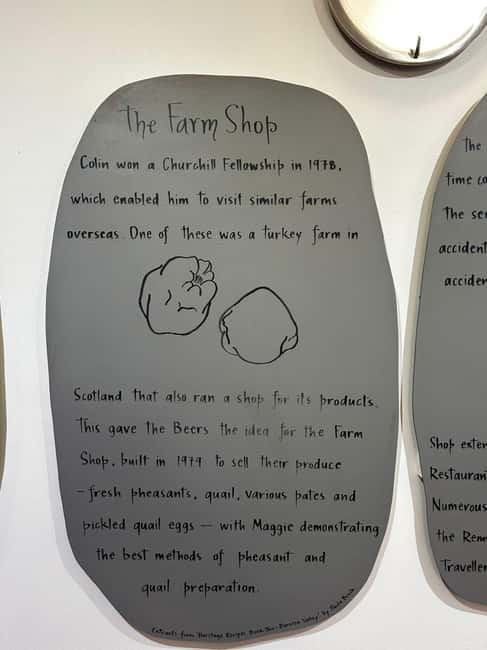 The Farm Shop
Colin won a Churchill Fellowship in 1978,
which enabled him to visit similar farms
overseas. One of these was a turkey farm in
Scotland that also ran a shop for its products.
This gave the Beers the idea for the Farm
Shop, built in 1979 to sell their produce
- fresh pheasants, quail, various pates and
pickled quail eggs — with Maggie demonstrating
the best methods of pheasant and
quail preparation.
Extracts from 'Heritage Recipe Book the Barossa Valley' by
The
time
The
accident
Shop
Restaurant
Numerous
the
Traveller